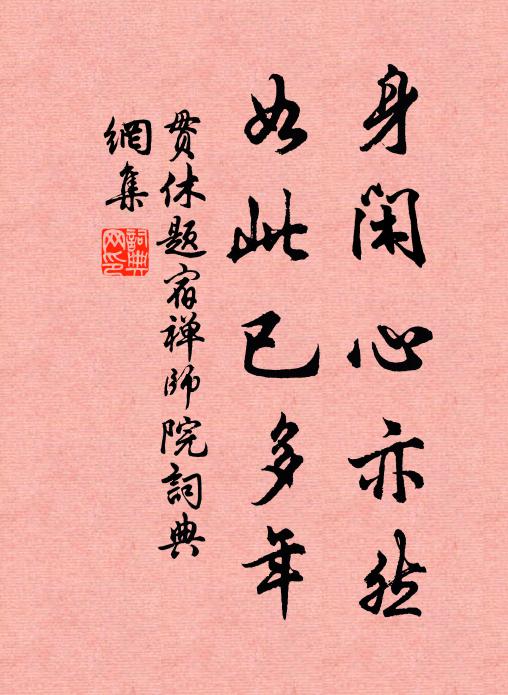 身閑心亦然
如此已多年
贯休题宿禅師院詞典
網集
詞典
网印